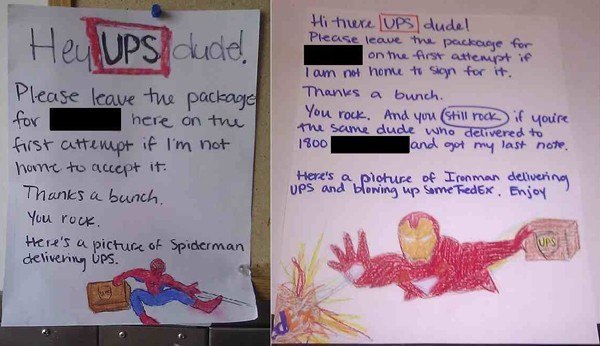 Hey UPS dude!
Please leave the package
for here on the
first attempt if I'm not
home to accept it.
Thanks a bunch.
You rock.
Here's a picture of Spiderman
delivering UPS.
Hi there UPS dude!
Please leave the package for
on the first attempt if
I am not home to sign for it.
Thanks a bunch.
You rock. And you still rock if you're
the same dude who delivered to
1800 and got my last note.
Here's a picture of Ironman delivering
UPS and blowing up some FedEx. Enjoy
UPS